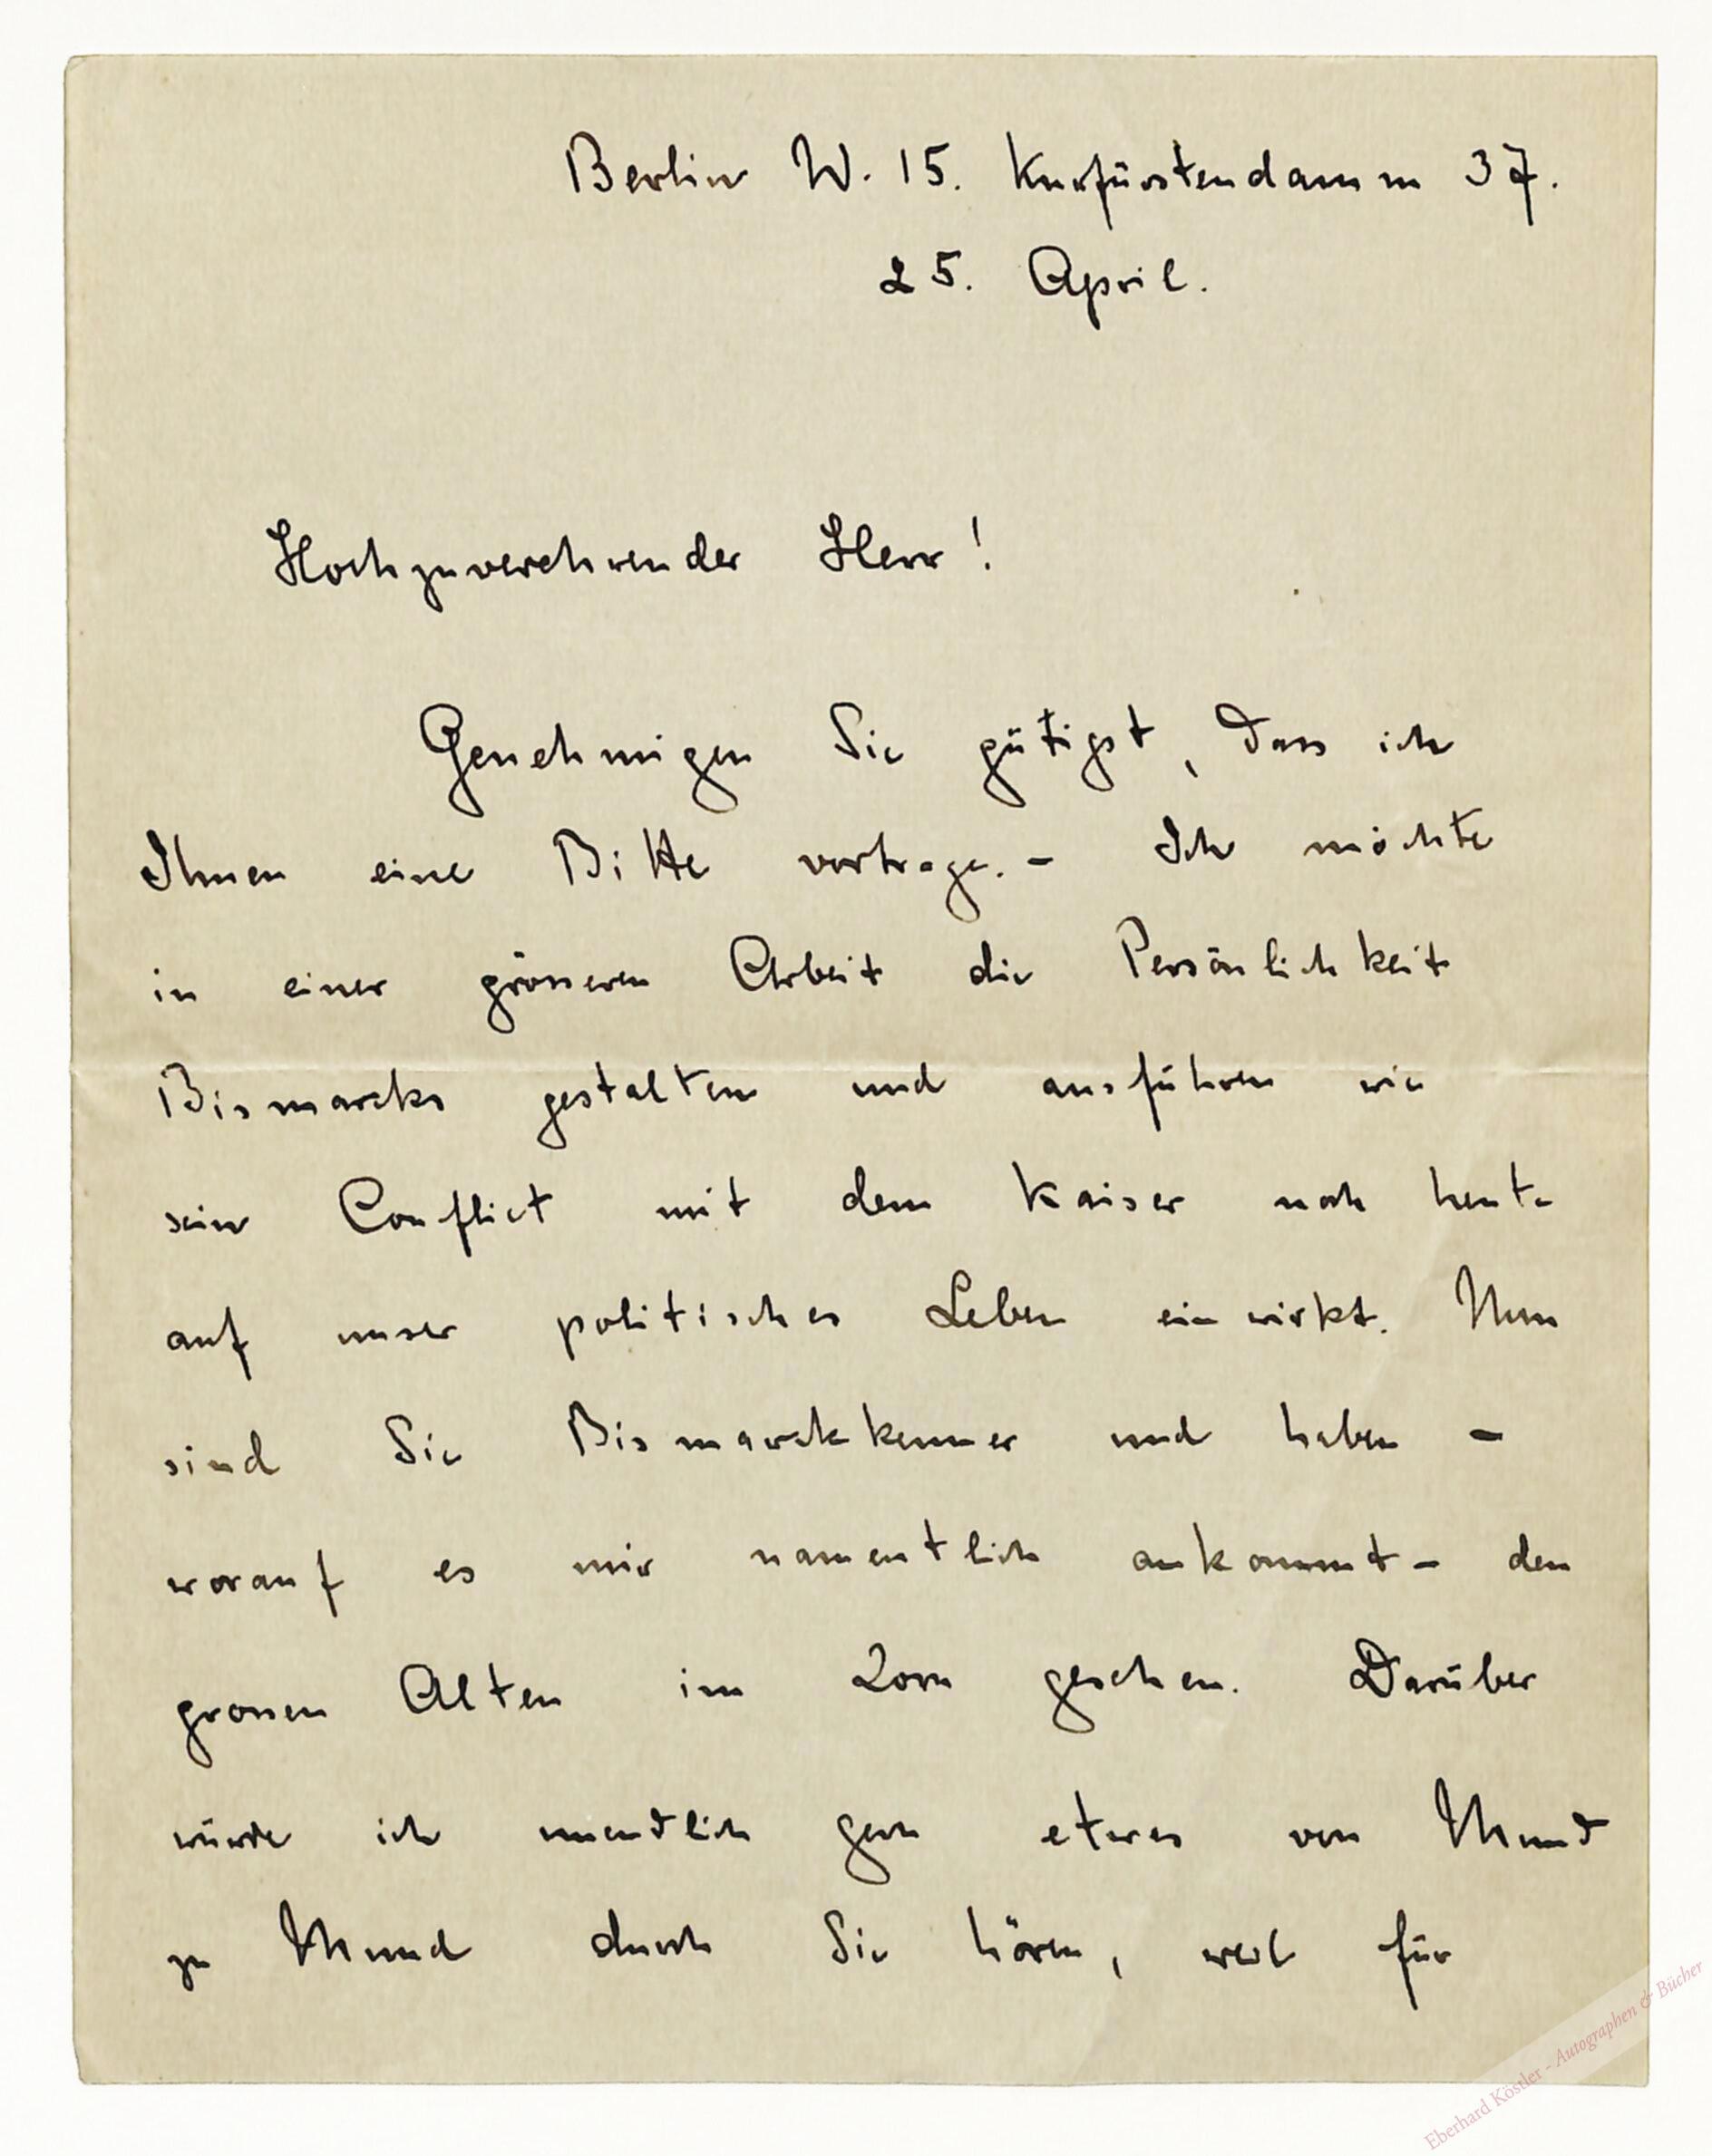 Berlin W. 15. Kurfürstendamm 37.
25. April.
Hochzuverehrender Herr!
Genehmigen Sie gütigst, dass ich
Ihnen eine Bitte vortrage. – Ich möchte
in einer grösseren Arbeit die Persönlichkeit
Bismarcks gestalten und ausführen wie
sein Conflict mit dem Kaiser noch heute
auf unser politisches Leben einwirkt. Nun
sind Sie Bismarckkenner und haben –
worauf es mir namentlich ankommt – den
grossen Alten im Zorn gesehen. Darüber
würde ich unendlich gern etwas von Mund
zu Mund durch Sie hören, weil für
Eberhard Köstler - Autographen & Bücher